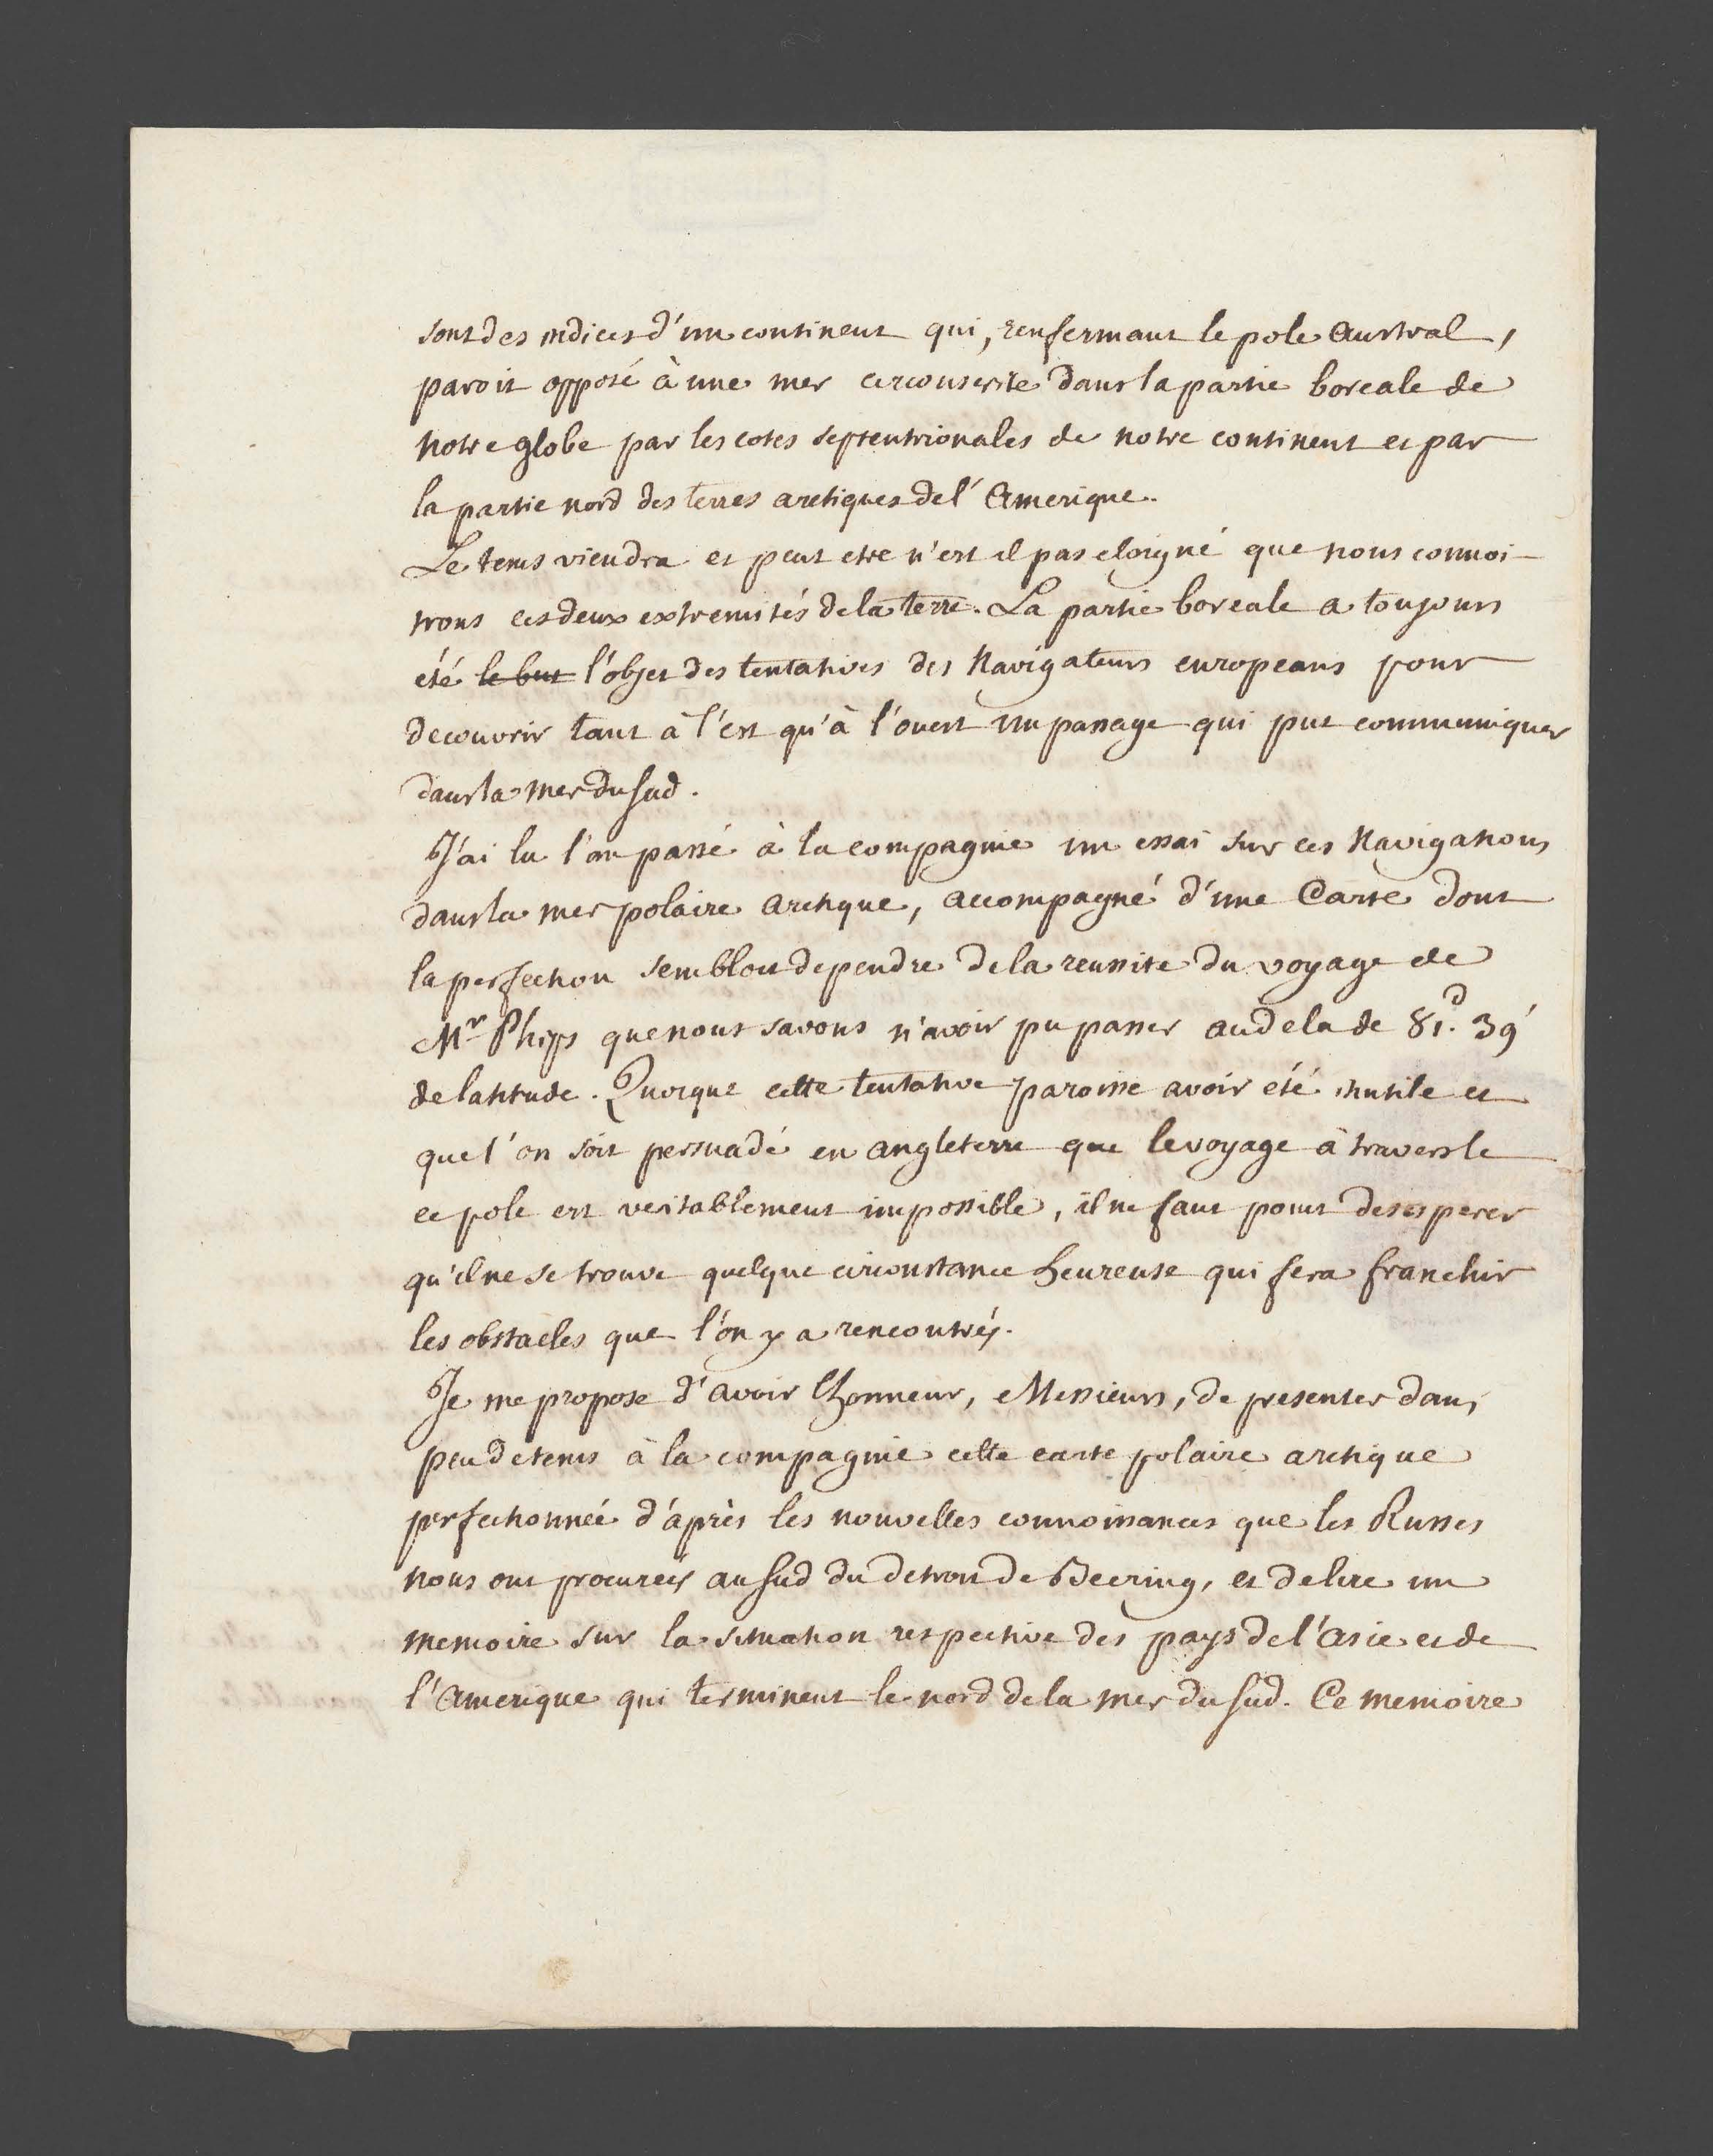 sont des indices d'un continent qui, renfermant le pole Austral,
paroit opposé à une mer circonscrite dans la partie boreale de
notre globe par les cotes septentrionales de notre continent et par
la partie nord des terres arctiques de l'Amerique.
Le tems viendra et peut etre n'est il pas eloigné que nous connoi-
trons ces deux extremités de la terre. La partie boreale a toujours
été le but l'objet des tentatives des Navigateurs europeans pour
decouvrir tant à l'est qu'à l'ouest un passage qui put communiquer
dans la mer du sud.
J'ai lu l'an passé à la compagnie un essai sur ces Navigations
dans la mer polaire arctique, accompagné d'une Carte dont
la perfection sembloit dependre de la reussite du voyage de
Mr Phips que nous savons n'avoir pu passer au dela de 81.d 39'
de latitude. Quoique cette tentative paroisse avoir été inutile et
que l'on soit persuadé en angleterre que le voyage à travers le
ce pole est veritablement impossible, il ne faut point desesperer
qu'il ne se trouve quelque circonstance heureuse qui fera franchir
les obstacles que l'on y a rencontrés.
Je me propose d'avoir lhonneur, Messieurs, de presenter dans
peu de tems à la compagnie cette carte polaire arctique
perfectionnée d'après les nouvelles connoissances que les Russes
nous ont procurées au sud du detroit de Beering, et de lire un
memoire sur la situation respective des pays de l'asie et de
l'Amerique qui terminent le nord de la mer du sud. Ce memoire